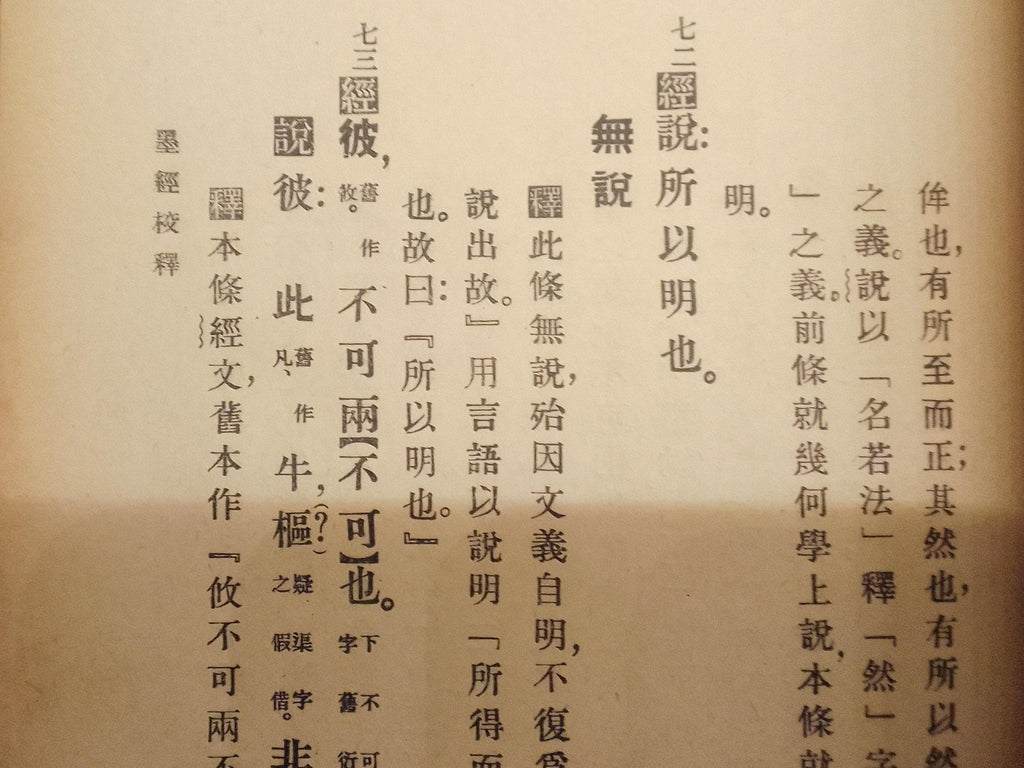 侔也,有所至而正;其然也,有所以然
之義。說以「名若法」釋「然」字
」之義。前條就幾何學上說,本條就
明。
七二經說:所以明也。
無說
釋此條無說,殆因文義自明,不復爲
說出故。』用言語以說明「所得而
也。故曰:『所以明也。』
七三經彼,舊作攸。不可兩【不可】也。下不可字舊衍
說彼:此舊作凡、牛,樞(?)疑渠字之假借。非
釋本條經文,舊本作『攸不可兩不
墨經校釋